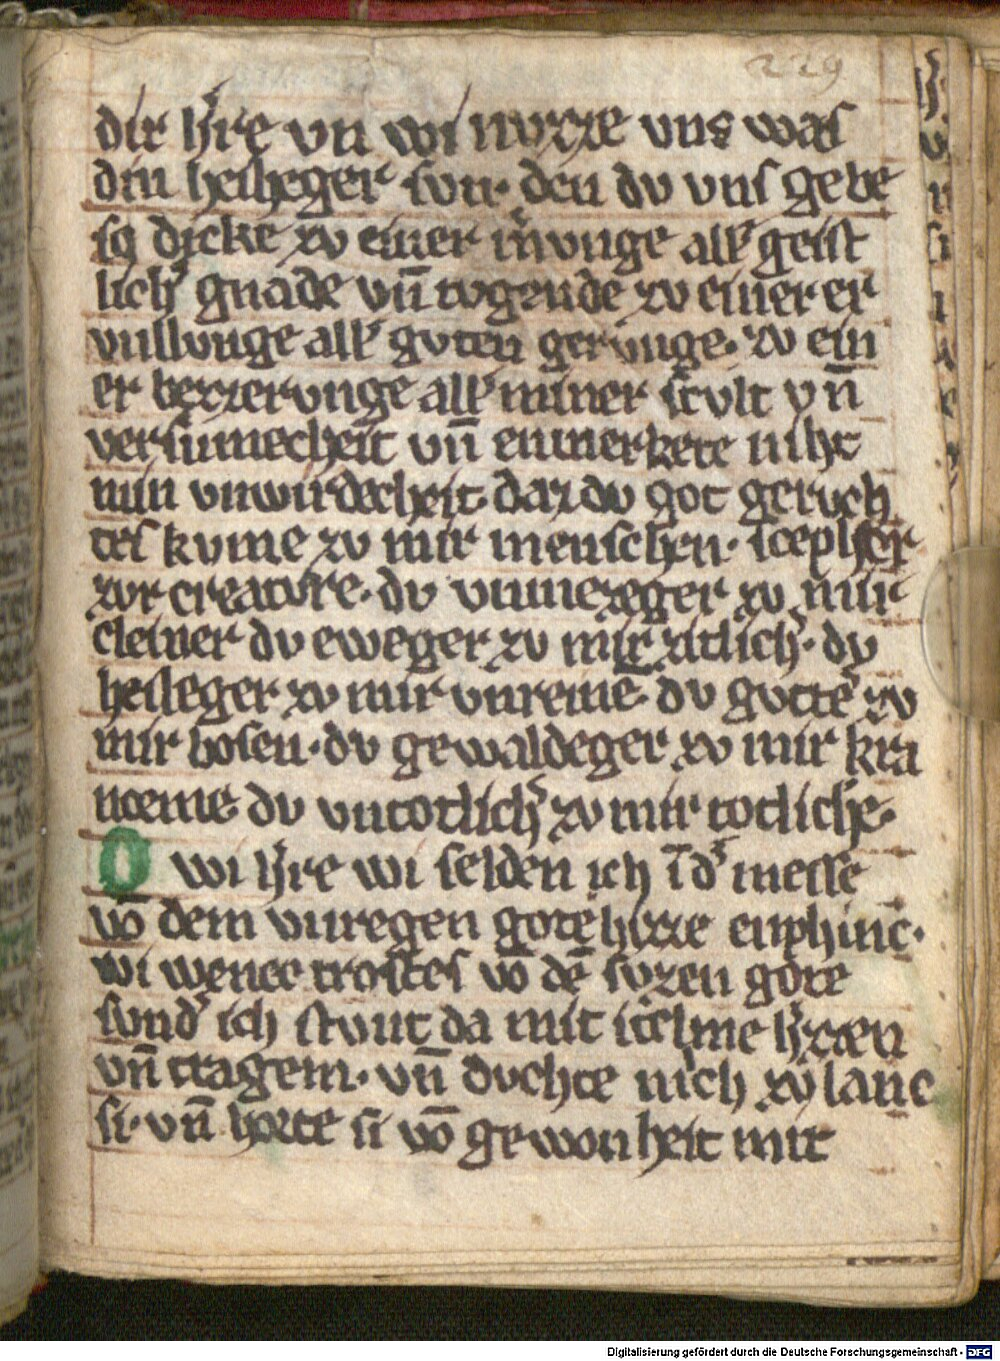 229
dir h̄re vn̄ wi nvzze vns was
din heileger svn· den dv vns gebe
so dicke zv einer mͣnvnge all͛ geist
lich͛ gnade vn̄ togende zv einer er
vullvnge all͛ gvten gervnge· zv ein
er bezzervnge all͛ miner scvlt vn̄
versumecheit vn̄ enmerkete niht
min vnwirdecheit· daz dv got gervch
tes kvme zv mir menschen· scepher
zvr creatvre· dv vnmezeger zv mir
cleiner dv eweger zv mir zitlich͛· dv
heileger zv mir vnreine· dv gvtte͛ zv
mir bosen· dv gewaldeger zv mir kra
nceme dv vntotlich͛ zv mir totliche·
O wi h̄re wi selden ich ī d͛ messe
vō dem vnregen gote hizze enphinc·
wi wenec trostes vō dē svzen gote
svnd͛ ich stvnt da mit itelme h̄zzen
vn̄ tragem· vn̄ dvchte mich zv lanc
si· vn̄ horte si vō gewonheit mit
Digitalisierung gefördert durch die Deutsche Forschungsgemeinschaft - DFG